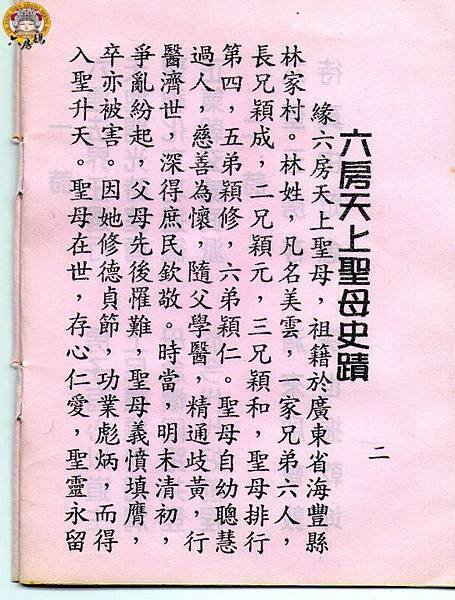 六房媽
六房天上聖母史蹟
緣六房天上聖母，祖籍於廣東省海豐縣
林家村。林姓，凡名美雲，一家兄弟六人，
長兄穎成，二兄穎元，三兄穎和，聖母排行
第四，五弟穎修，六弟穎仁。聖母自幼聰慧
過人，慈善為懷，隨父學醫，精通歧黃，行
醫濟世，深得庶民欽敬。時當，明末清初，
爭亂紛起，父母先後罹難，聖母義憤填膺，
卒亦被害。因她修德貞節，功業彪炳，而得
入聖升天。聖母在世，存心仁愛，聖靈永留
二